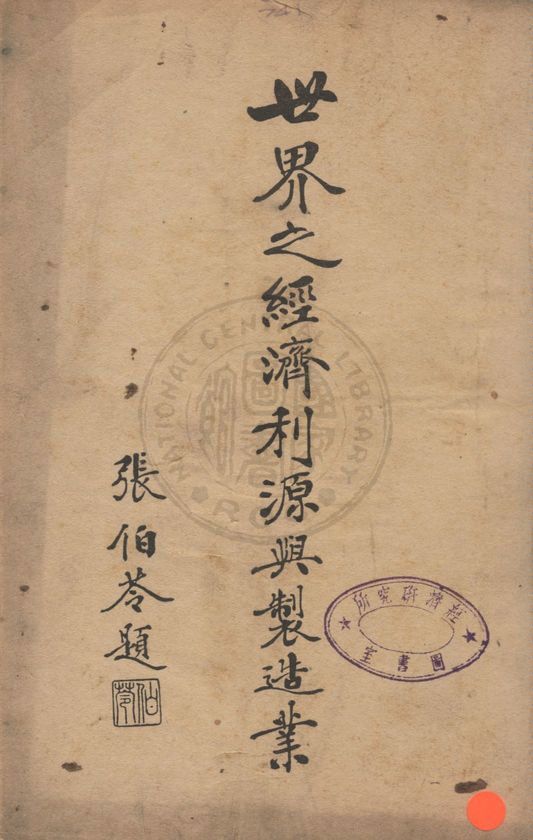 世界之經濟利源與製造業
張伯苓題
伯苓
經濟研究所
圖書室
NATIONAL CENTRAL LIBRARY